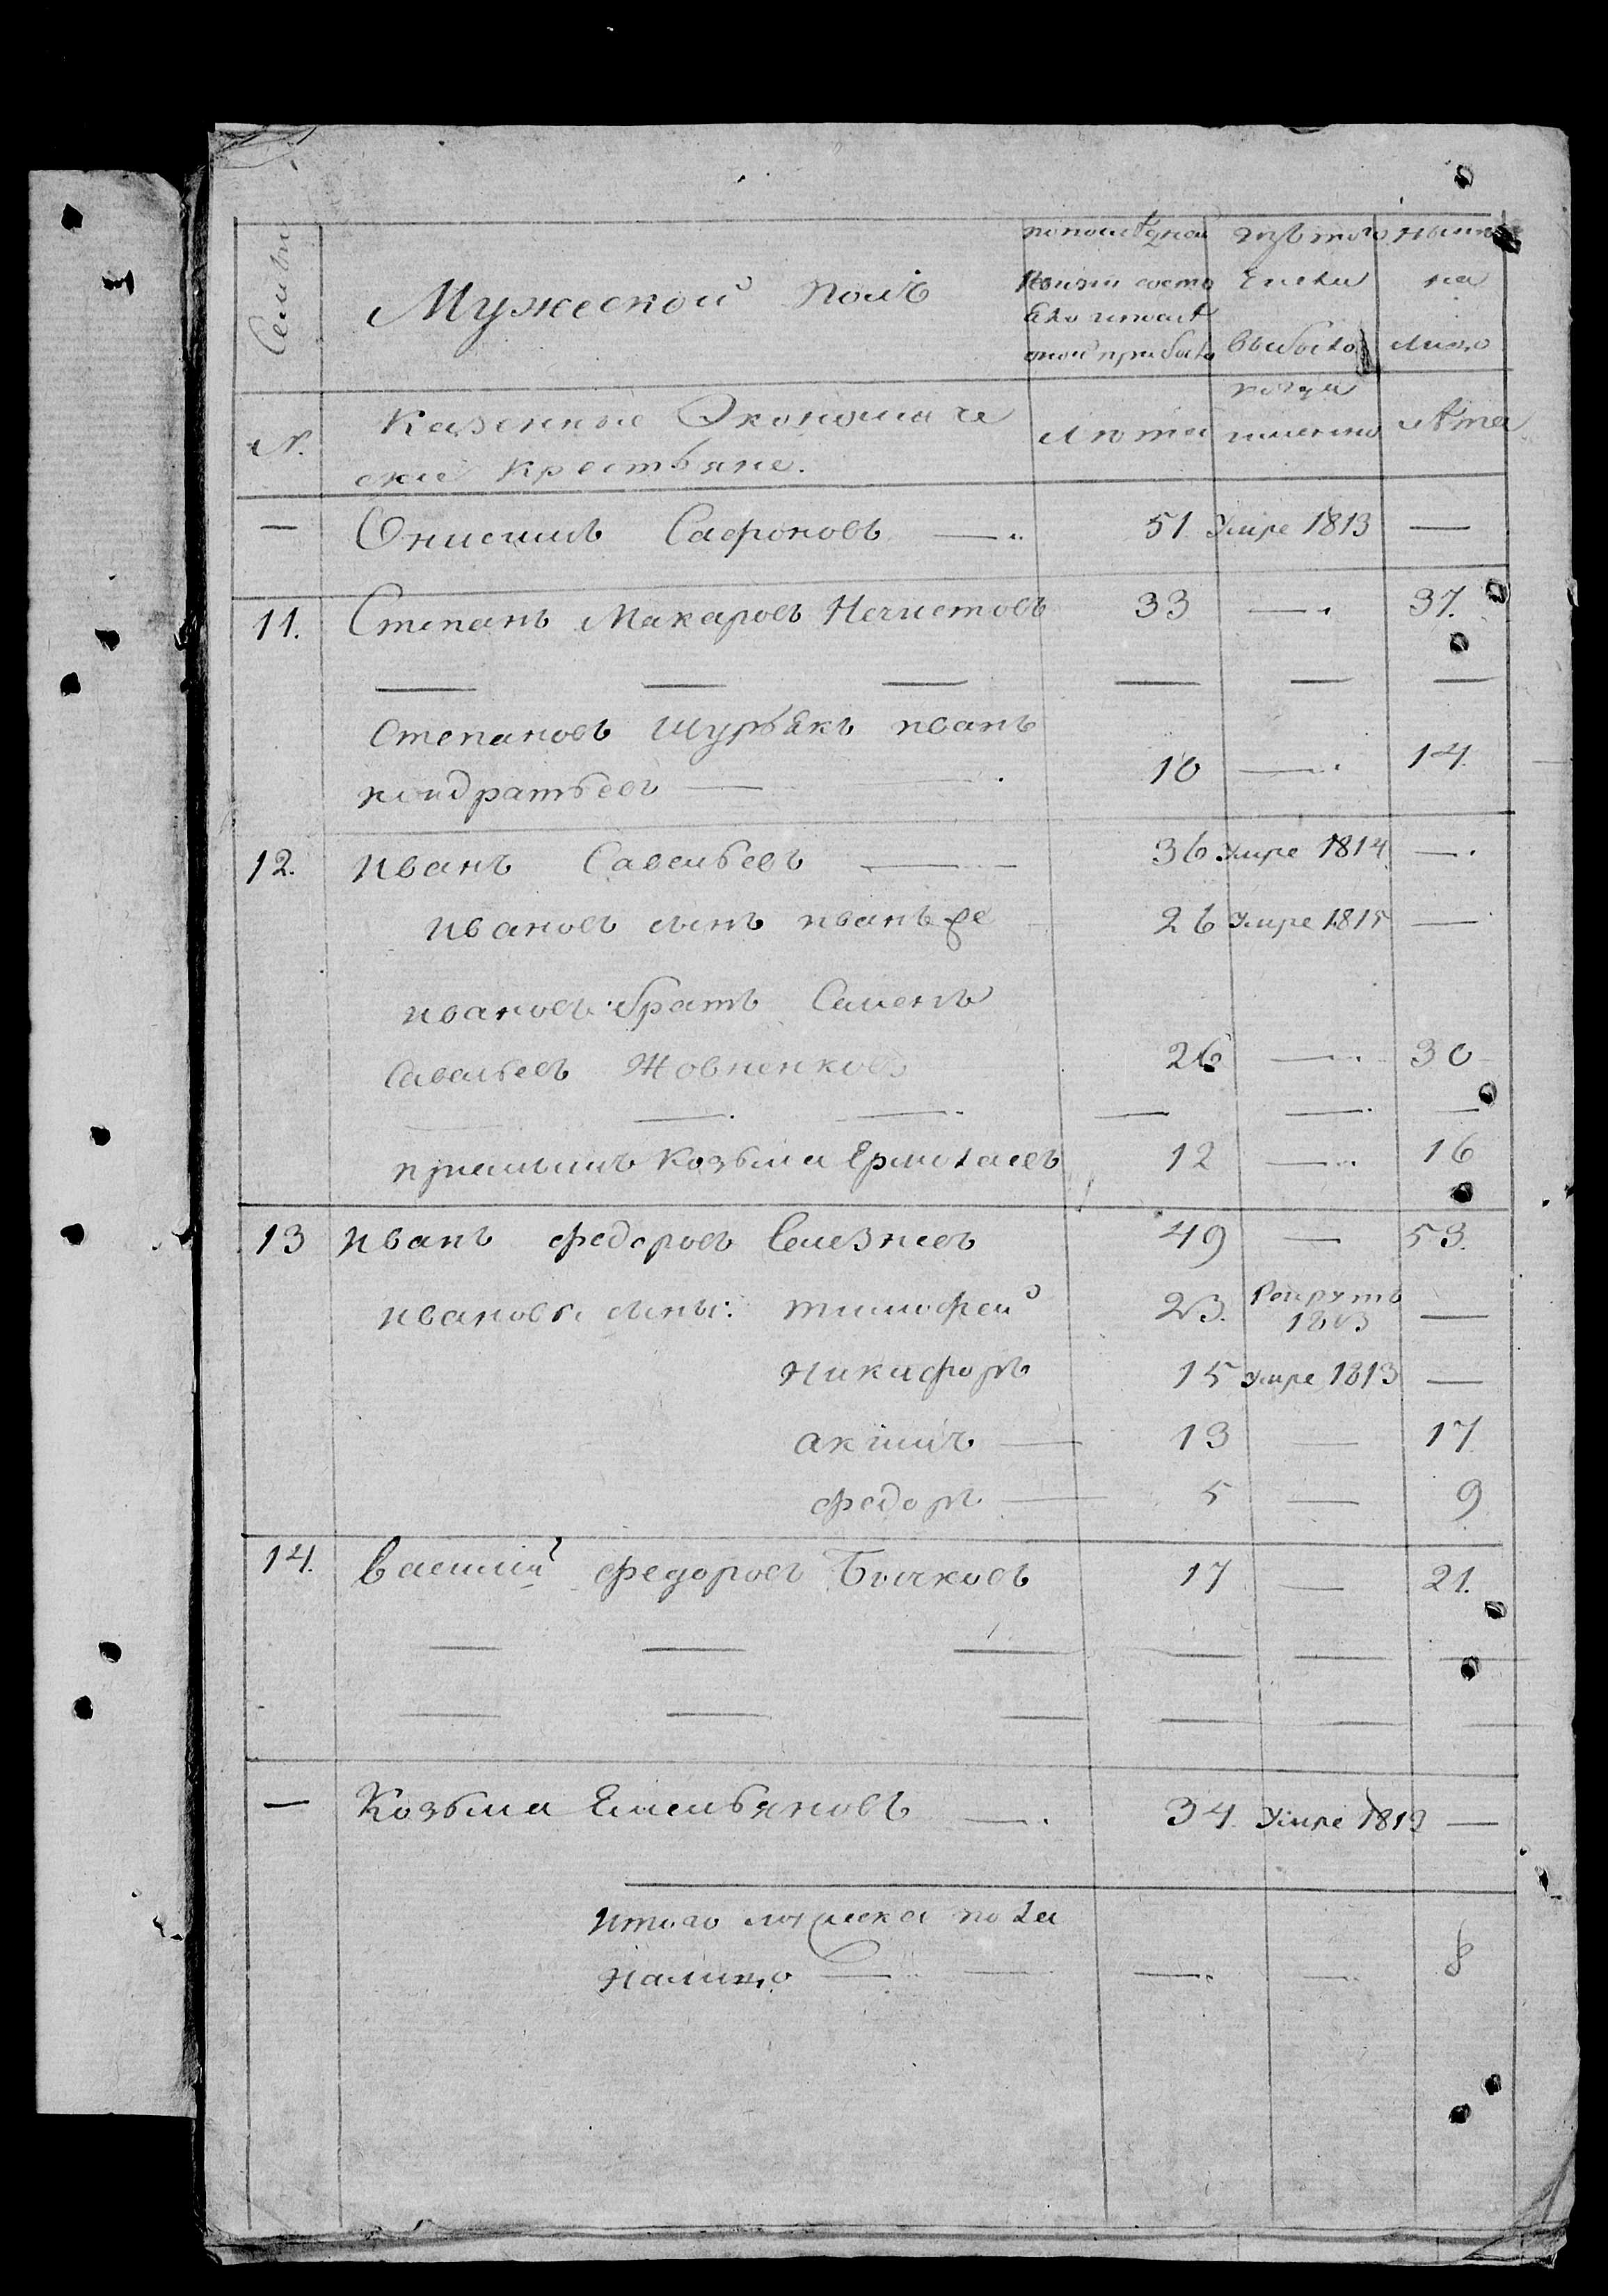 Семьи
Мужеской полъ
по последней
ревизии состо
яло и после
оной прибыло
Изъ того
числа
выбыло
Ныне
на
лицо
№.
Казенные Экономиче
ские крестьяне.
Лѣта
когда
именно
Лѣта
— Онисимъ Сафоновъ — 51 Умре 1813 —
11. Степанъ Макаровъ Нечистовъ 33 — 37.
— — — — — —
Степановъ Шурьякъ Иванъ
кондратьевъ — 10 — 14
12. Иванъ Савельевъ — 36 Умре 1814 —
Ивановъ сынъ Иванъ же 26 Умре 1815 —
Ивановъ братъ Семенъ
Савельевъ Жовненковъ 26 — 30
— — — — —
приемышъ Козьма Ермолаевъ 12 — 16
13 Иванъ Федоровъ Селезневъ 49 — 53.
Ивановы сыны: Тимофей 23. Рекрутъ
1813 —
Никифоръ 15 Умре 1813 —
Акимъ — 13 — 17
Федоръ — 5 — 9
14. Василий Федоровъ Бычковъ 17 — 21.
— — — — — —
— — — — — —
— Козьма Емельяновъ — 34. Умре 1812 —
Итого мужеска пола
налицо — — — — 8